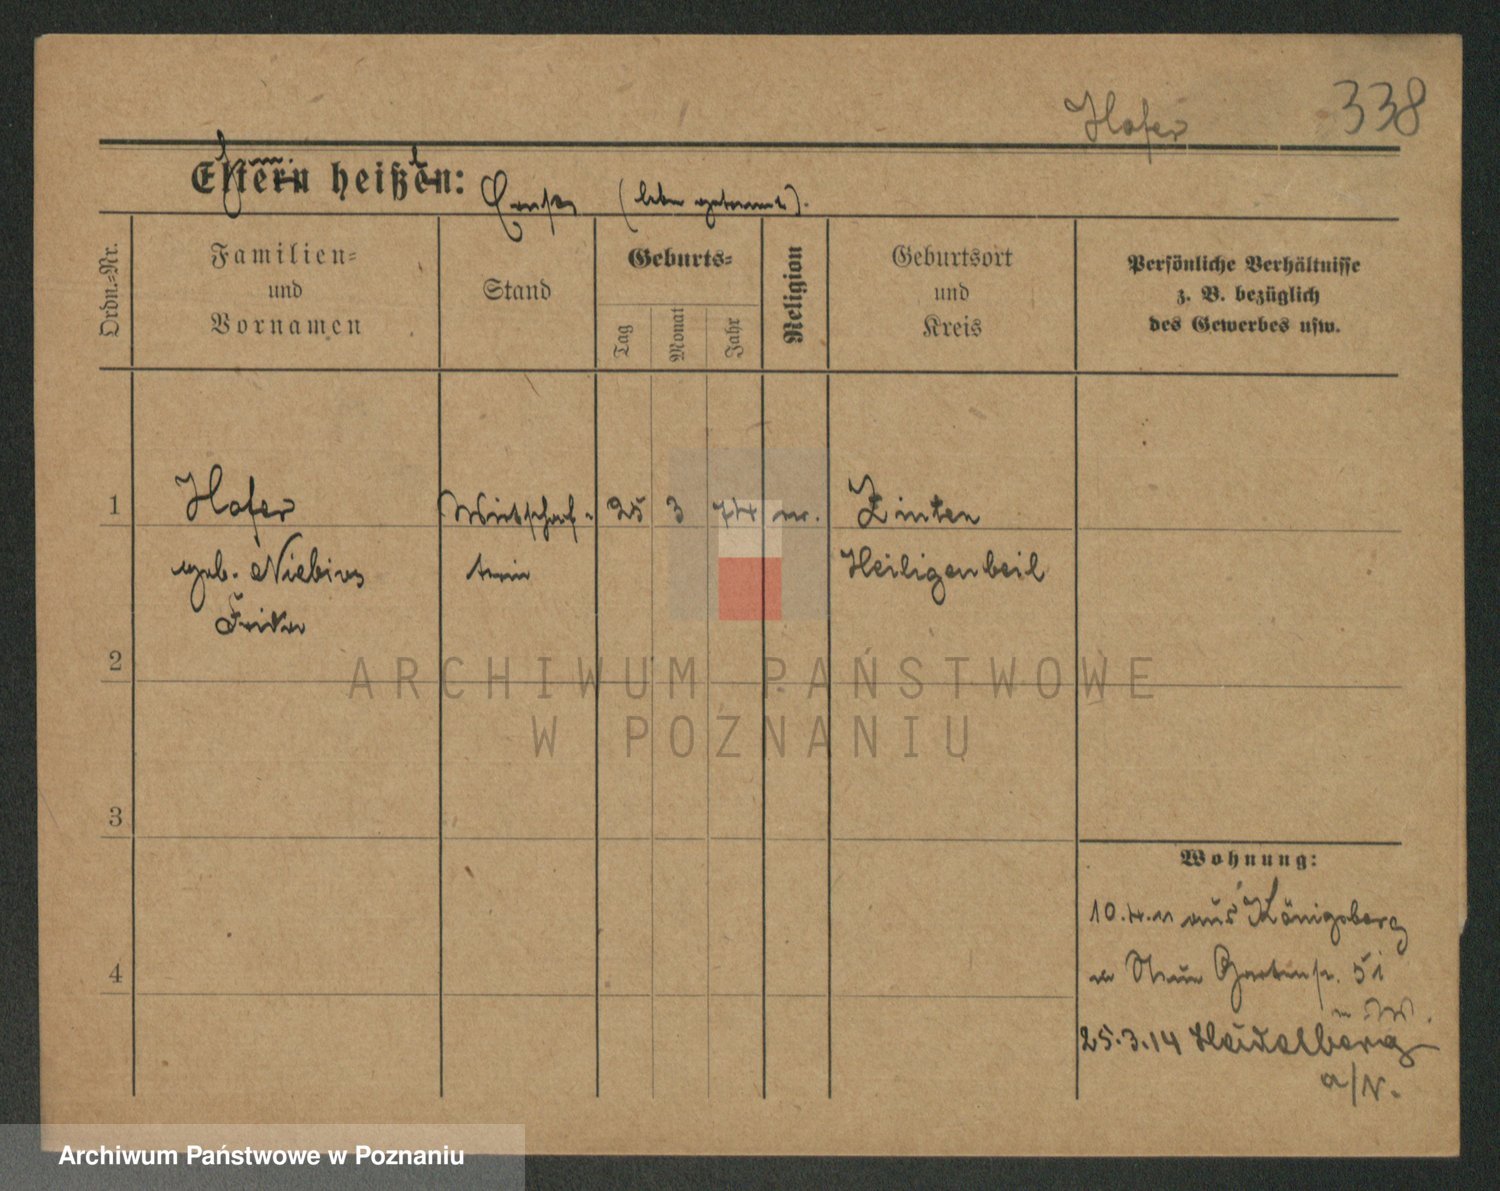 Hofer 338
Eltern heißen: (leben getrennt).
Ordn.-Nr.
Familien-
und
Vornamen
Stand
Geburts-
Tag
Monat
Jahr
Religion
Geburtsort
und
Kreis
Persönliche Verhältnisse
z. B. bezüglich
des Gewerbes usw.
1 Hofer Wirtschaf- 25 3 74 Zinten
geb. Heiligenbeil
2
ARCHIWUM PAŃSTWOWE
W POZNANIU
3
Wohnung:
10.4.11 aus Königsberg
Gartenstr. 51
4
25.3.14 Heidelberg
a/N.
Archiwum Państwowe w Poznaniu